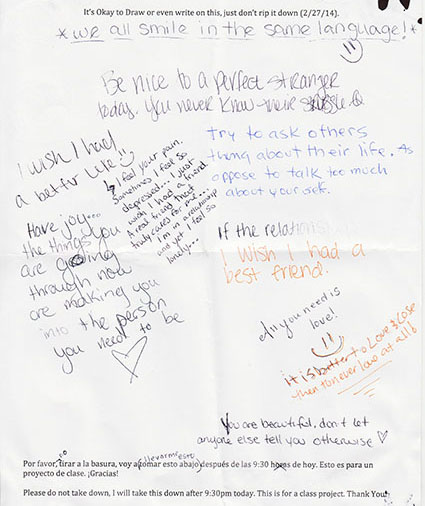 It's Okay to Draw or even write on this, just don't rip it down (2/27/14).
*we all smile in the same language!*
Be nice to a perfect stranger
today. You never know their
I wish I had
a better life
↳ I feel your pain.
Sometimes I feel so
depressed... I just
wish I had a friend.
A real friend that
truly cared for me...
I'm in a relationship
and yet I feel so
lonely...
try to ask others
thing about their life. As
oppose to talk too much
about yourself.
Have joy...
the things you
are going
through now
are making you
into the person
you need to be
If the relations
I wish I had a
best friend.
all you need is
love!
it is better to Love & Lose
then to never love at all!
You are beautiful, don't let
anyone else tell you otherwise ♡
llevarme esto
Por favor, no tirar a la basura, voy a tomar esto abajo después de las 9:30 horas de hoy. Esto es para un
proyecto de clase. ¡Gracias!
Please do not take down, I will take this down after 9:30pm today. This is for a class project. Thank You!